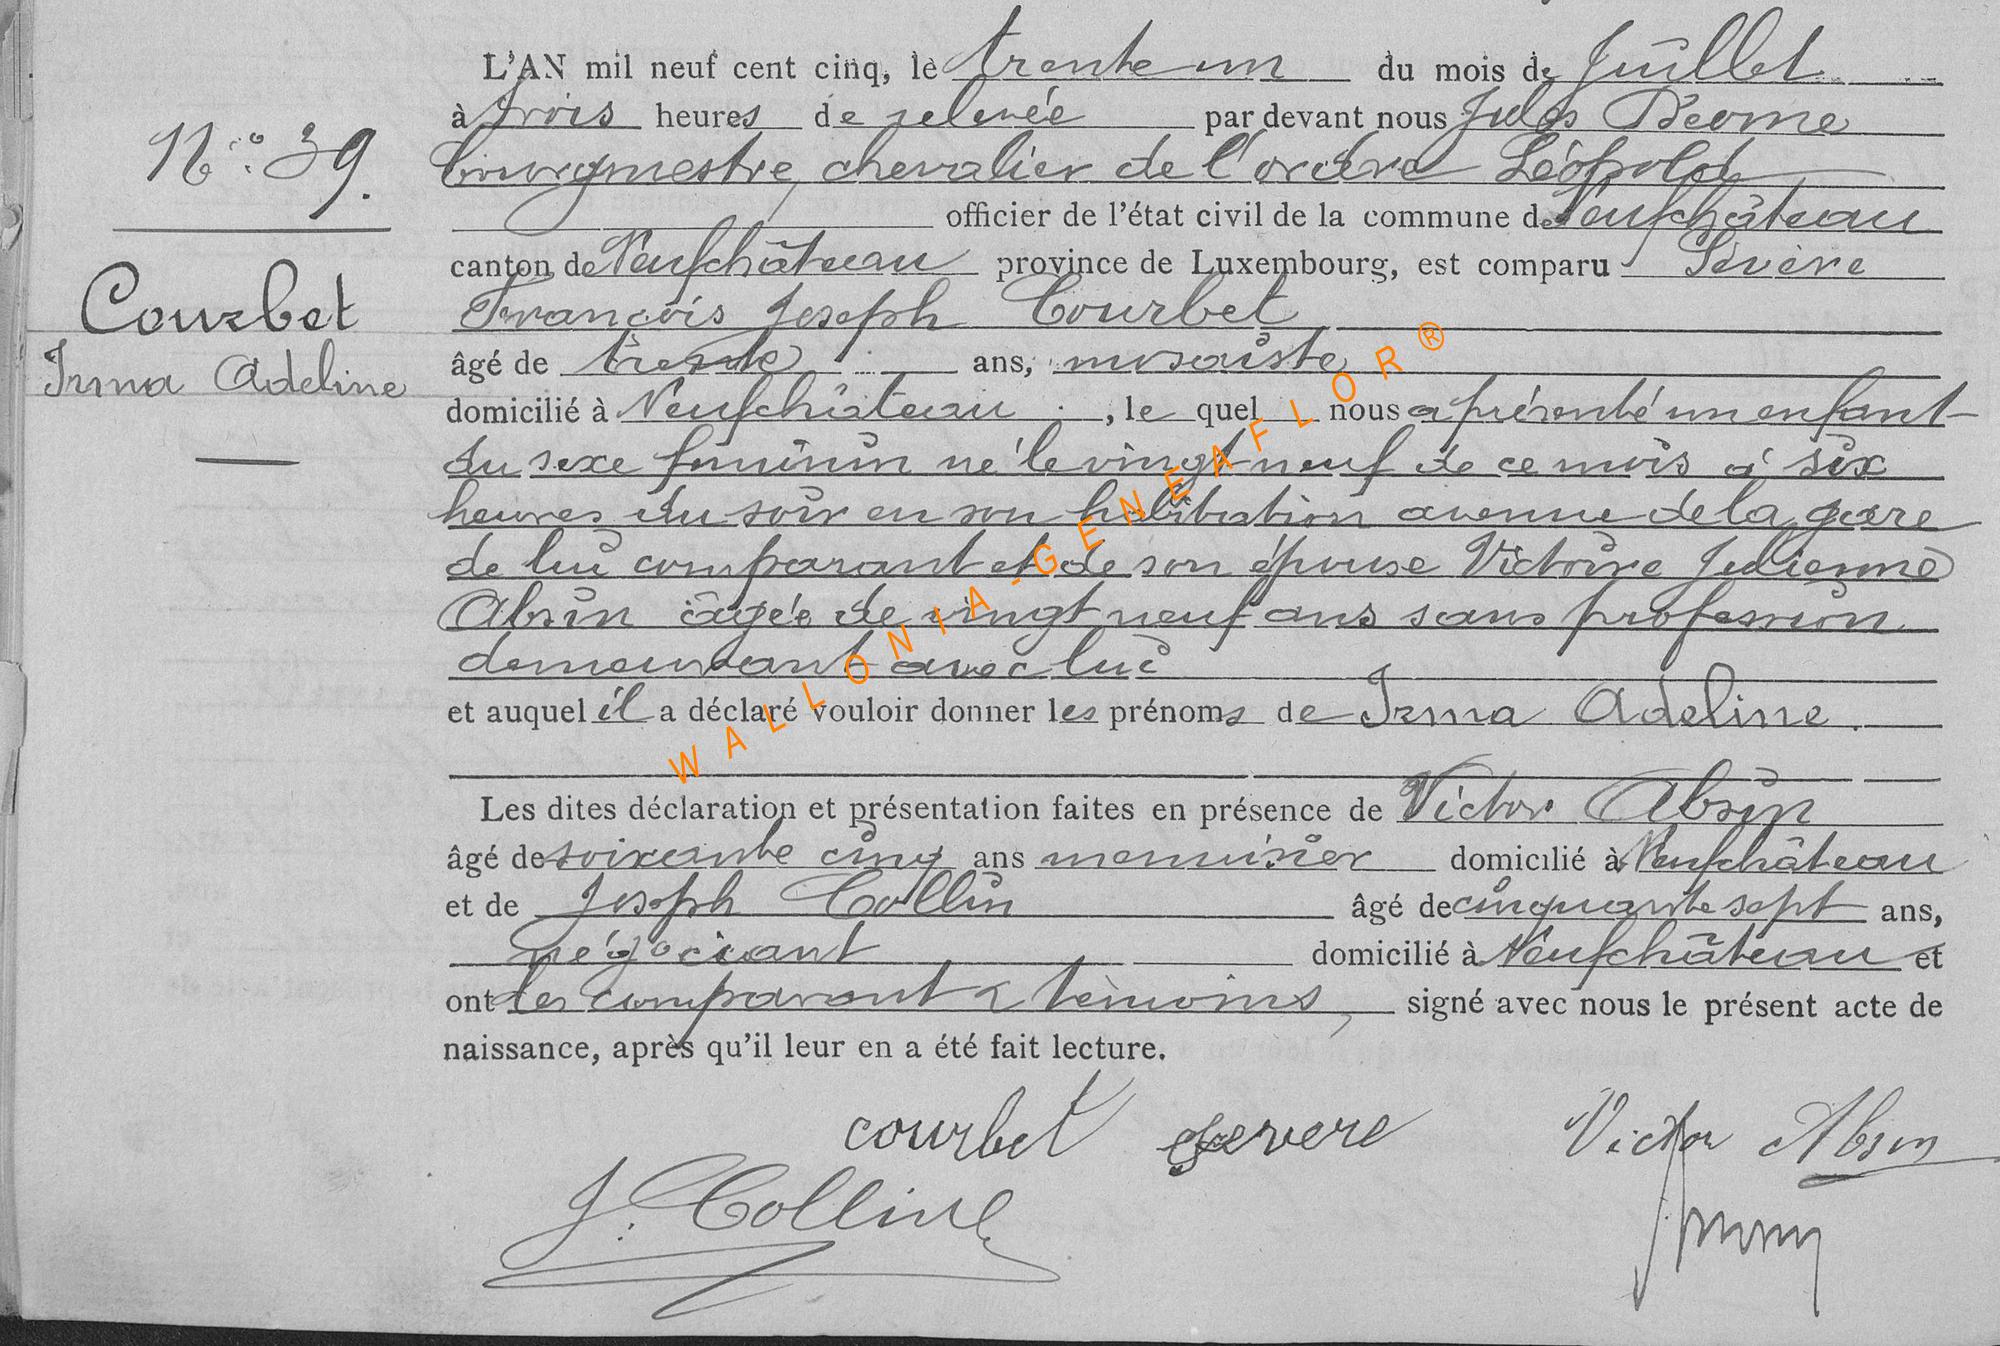 L'AN mil neuf cent cinq, le trente un du mois de Juillet
à trois heures de relevée par devant nous Jules
N° 39.
bourgmestre, chevalier de l'ordre Léopold
officier de l'état civil de la commune de Neufchâteau
canton de Neufchâteau province de Luxembourg, est comparu Sévère
Courbet
François Joseph Courbet
Irma Adeline
âgé de trente ans, mosaiste
domicilié à Neufchâteau, le quel nous a présenté un enfant
du sexe feminin né le vingt neuf de ce mois à six
heures du soir en son habitation avenue de la gare
de lui comparant et de son épouse Victoire Julienne
Absin âgée de vingt neuf ans sans profession
demeurant avec lui
et auquel il a déclaré vouloir donner les prénoms de Irma Adeline.
Les dites déclaration et présentation faites en présence de Victor Absin
âgé de soixante cinq ans menuisier domicilié à Neufchâteau
et de Joseph Collin âgé de cinquante sept ans,
négociant domicilié à Neufchâteau et
ont les comparant & témoins, signé avec nous le présent acte de
naissance, après qu'il leur en a été fait lecture.
courbet severe Victor Absin
J. Collin
WALLONIA-GENEAFLOR®